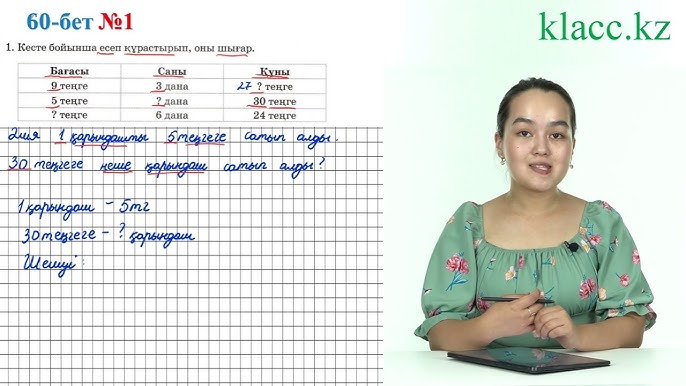 60-бет №1
klacc.kz
1. Кесте бойынша есеп құрастырып, оны шығар.
Бағасы Саны Құны
9 теңге 3 дана 27 ? теңге
5 теңге ? дана 30 теңге
? теңге 6 дана 24 теңге
1 қарындашты 5 теңгеге сатып алды.
30 теңгеге неше қарындаш сатып алды?
1 қарындаш – 5тг
30 теңгеге – ? қарындаш
Шешуі: